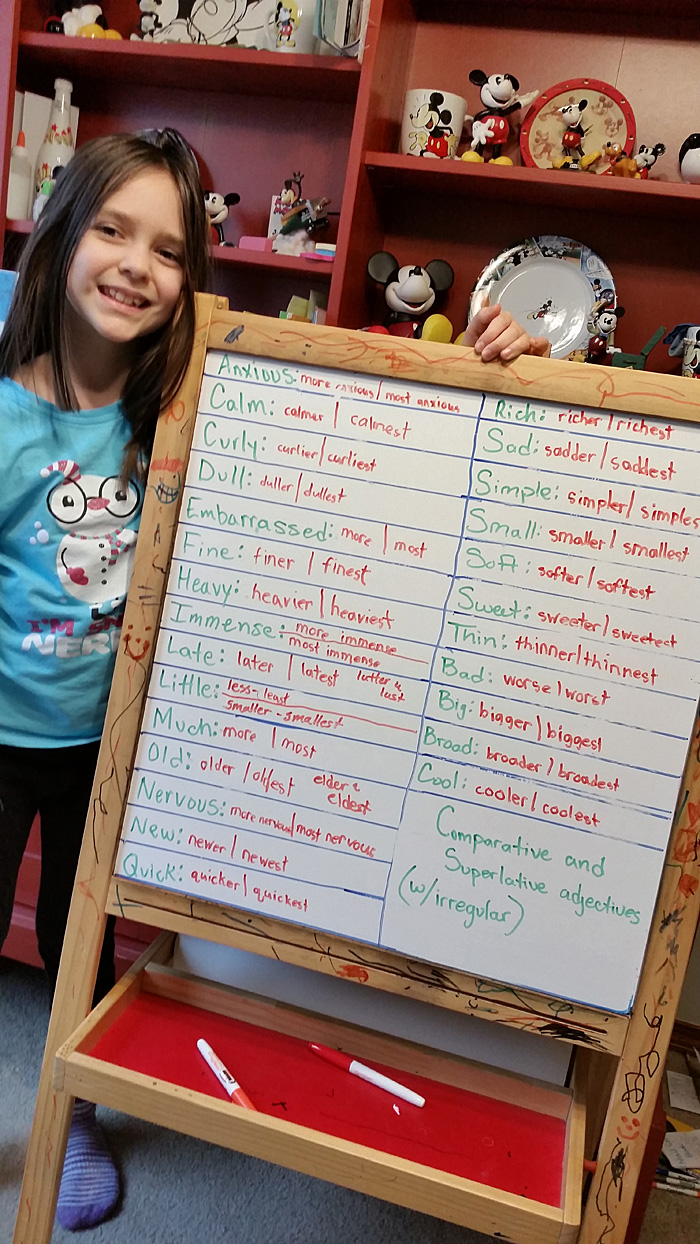 Anxious: more anxious / most anxious
Calm: calmer / calmest
Curly: curlier / curliest
Dull: duller / dullest
Embarrassed: more / most
Fine: finer / finest
Heavy: heavier / heaviest
Immense: more immense
most immense
Late: later / latest latter &
last
Little: less - least
smaller - smallest
Much: more / most
Old: older / oldest elder &
eldest
Nervous: more nervous / most nervous
New: newer / newest
Quick: quicker / quickest
Rich: richer / richest
Sad: sadder / saddest
Simple: simpler / simples
Small: smaller / smallest
Soft: softer / softest
Sweet: sweeter / sweetest
Thin: thinner / thinnest
Bad: worse / worst
Big: bigger / biggest
Broad: broader / broadest
Cool: cooler / coolest
Comparative and
Superlative adjectives
(w/irregular)
I'M
NER